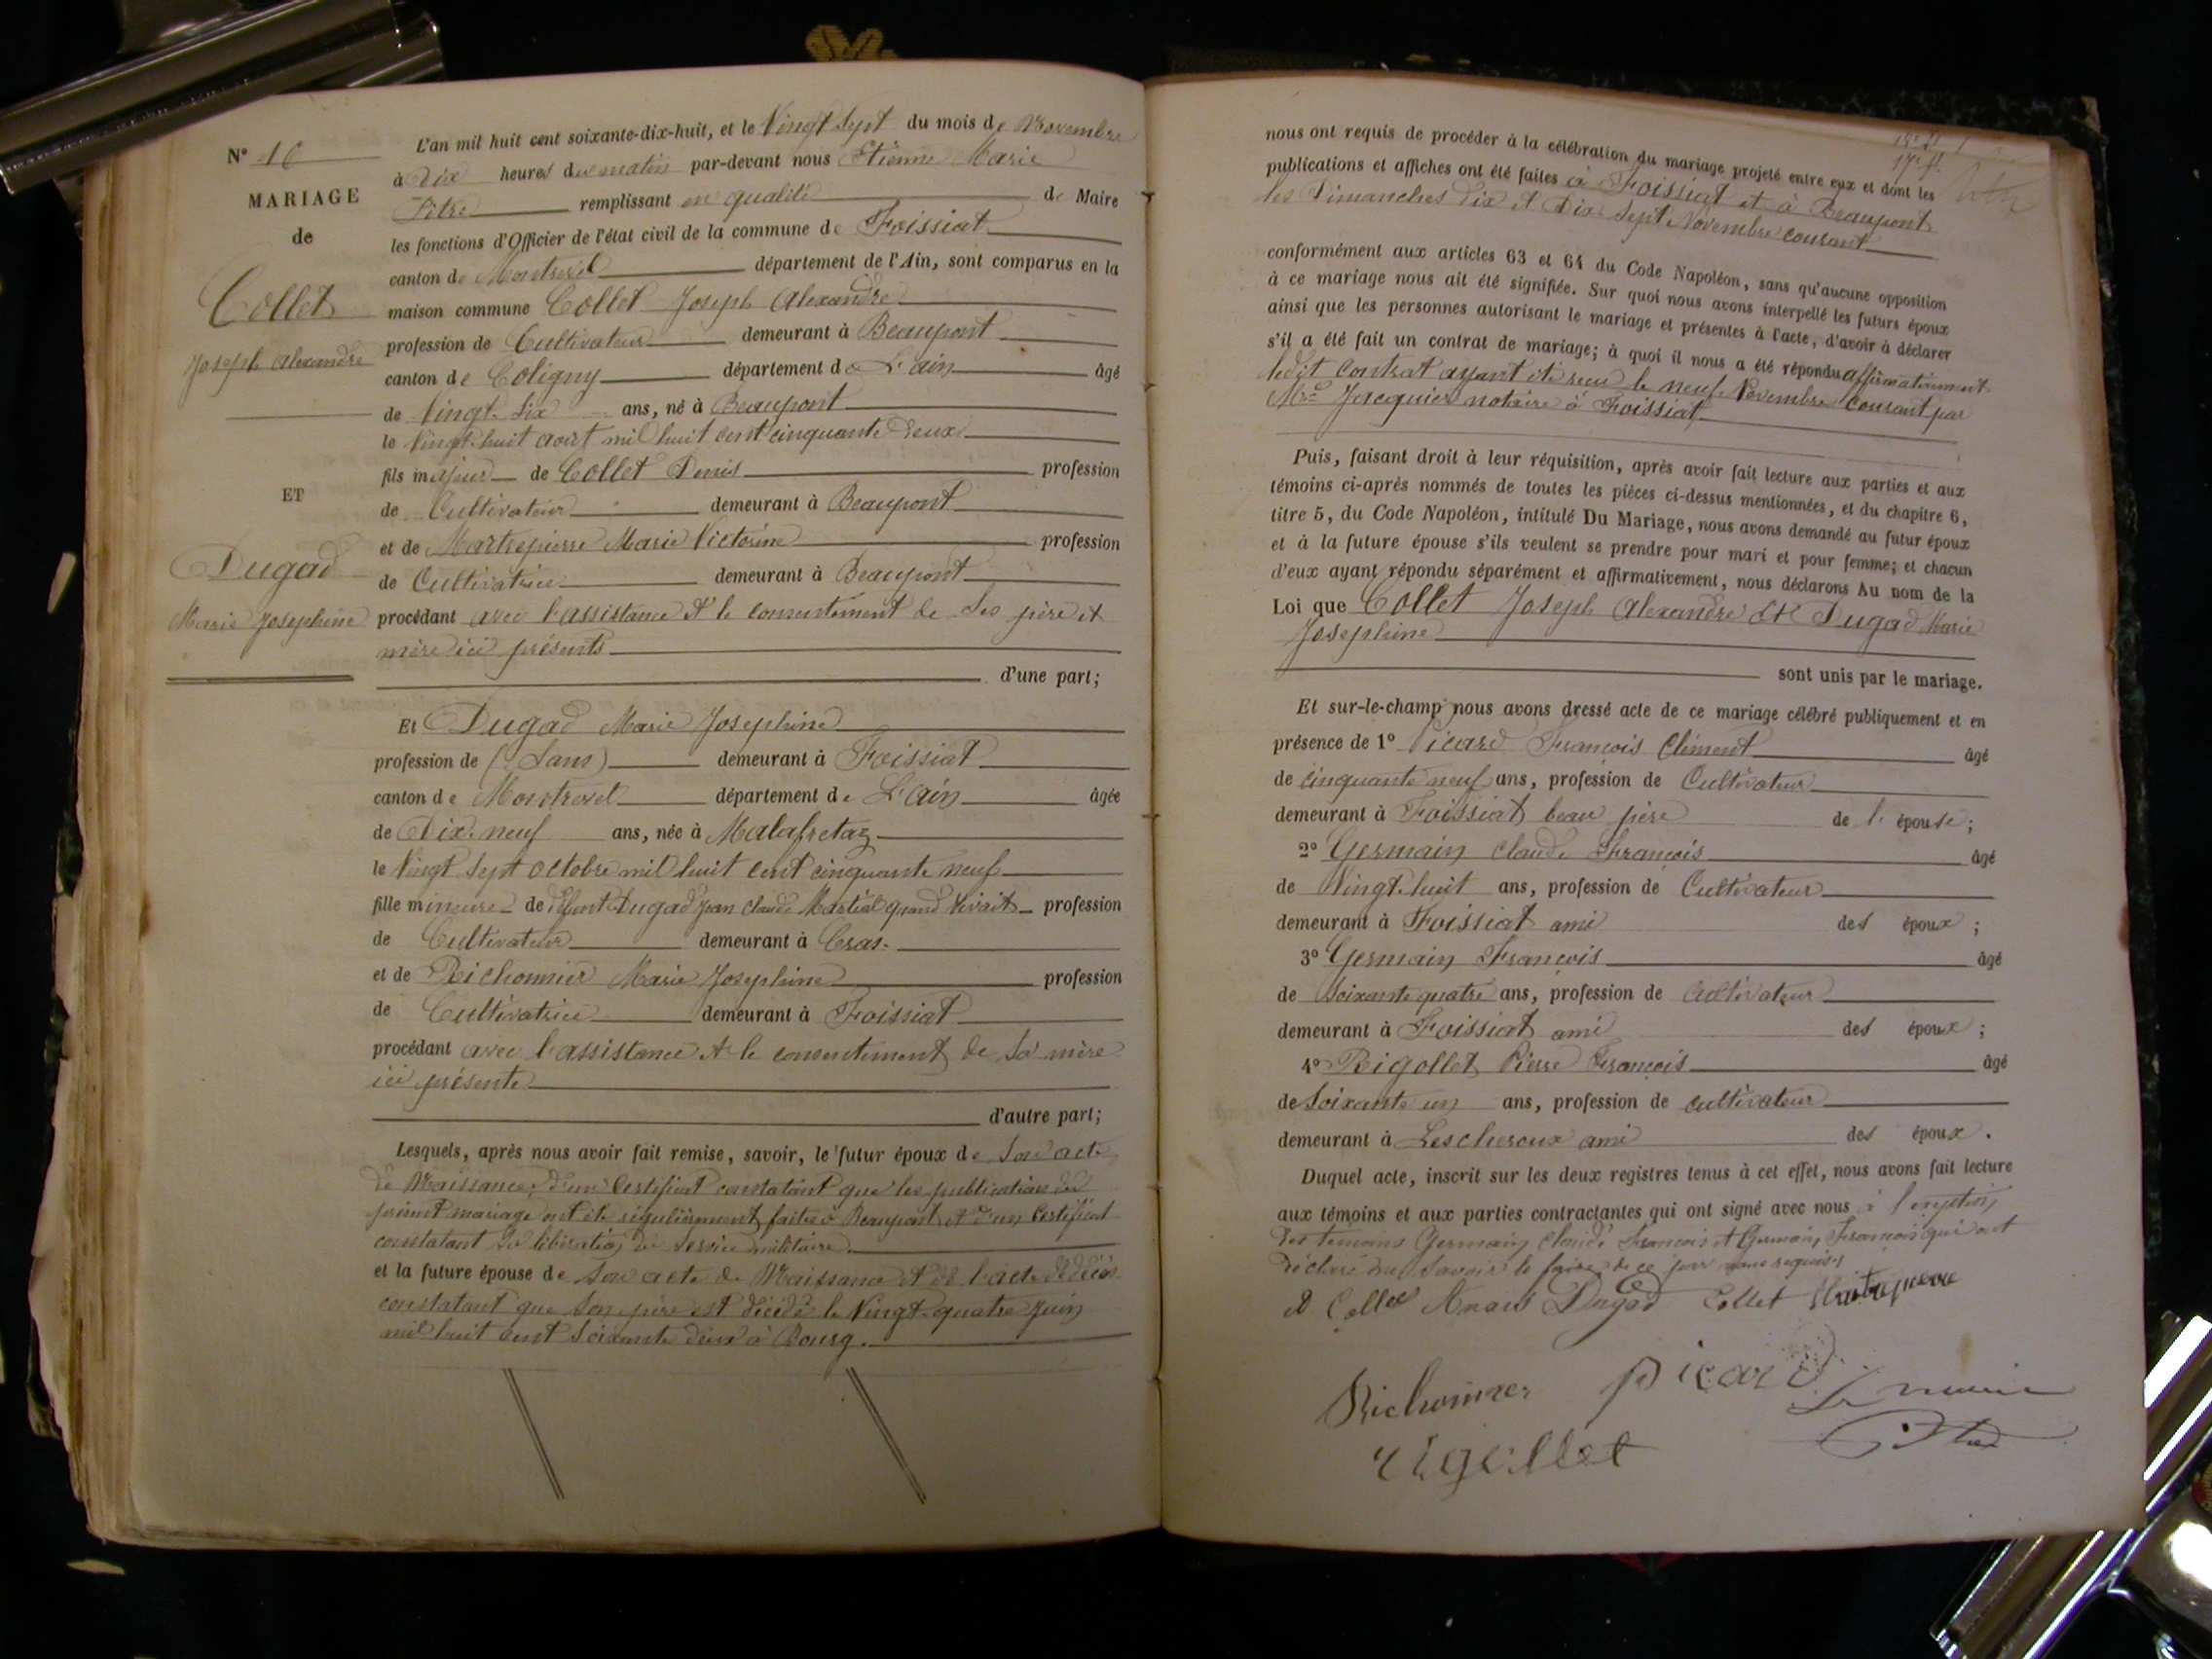 N° 16
MARIAGE
de
Collet
Joseph Alexandre
ET
Dugad
Marie Josephine
L'an mil huit cent soixante-dix-huit, et le Vingt Sept du mois de Novembre
à Dix heures du matin par-devant nous Etienne Marie
Pitre remplissant en qualité de Maire
les fonctions d'Officier de l'état civil de la commune de Foissiat
canton de Montrevel département de l'Ain, sont comparus en la
maison commune Collet Joseph Alexandre
profession de Cultivateur demeurant à Beaupont
canton de Coligny département de L'ain âgé
de Vingt Six ans, né à Beaupont
le Vingt huit aout mil huit cent cinquante deux
fils majeur de Collet Denis profession
de Cultivateur demeurant à Beaupont
et de Martrepierre Marie Victorine profession
de Cultivatrice demeurant à Beaupont
procédant avec l'assistance et le consentement de Ses père et
mère ici présents
d'une part;
Et Dugad Marie Josephine
profession de (Sans) demeurant à Foissiat
canton de Montrevel département de L'ain âgée
de Dix neuf ans, née à Malafretaz
le Vingt Sept octobre mil huit cent cinquante neuf
fille mineure de défunt Dugad Jean Claude Martial quand vivait profession
de Cultivateur demeurant à Cras.
et de Richonnier Marie Josephine profession
de Cultivatrice demeurant à Foissiat
procédant avec l'assistance et le consentement de Sa mère
ici présente
d'autre part;
Lesquels, après nous avoir fait remise, savoir, le futur époux de Son acte
de Naissance, d'un Certificat constatant que les publications du
présent mariage ont été régulièrement faites à Beaupont et d'un Certificat
constatant Sa libération du Service militaire.
et la future épouse de Son acte de Naissance et de l'acte de décès
constatant que Son père est décédé le Vingt quatre Juin
mil huit cent Soixante deux à Bourg.
nous ont requis de procéder à la célébration du mariage projeté entre eux et dont les
publications et affiches ont été faites à Foissiat et à Beaupont
les Dimanches Dix et Dix Sept Novembre courant
conformément aux articles 63 et 64 du Code Napoléon, sans qu'aucune opposition
à ce mariage nous ait été signifiée. Sur quoi nous avons interpellé les futurs époux
ainsi que les personnes autorisant le mariage et présentes à l'acte, d'avoir à déclarer
s'il a été fait un contrat de mariage; à quoi il nous a été répondu affirmativement
ledit Contrat ayant été reçu le neuf Novembre courant par
Mre Jacquier notaire à Foissiat
Puis, faisant droit à leur réquisition, après avoir fait lecture aux parties et aux
témoins ci-après nommés de toutes les pièces ci-dessus mentionnées, et du chapitre 6,
titre 5, du Code Napoléon, intitulé Du Mariage, nous avons demandé au futur époux
et à la future épouse s'ils veulent se prendre pour mari et pour femme; et chacun
d'eux ayant répondu séparément et affirmativement, nous déclarons Au nom de la
Loi que Collet Joseph Alexandre et Dugad Marie
Josephine
sont unis par le mariage.
Et sur-le-champ nous avons dressé acte de ce mariage célébré publiquement et en
présence de 1° Picard François Clément âgé
de Cinquante neuf ans, profession de Cultivateur
demeurant à Foissiat beau père de l' épouse;
2° Germain Claude François âgé
de Vingt huit ans, profession de Cultivateur
demeurant à Foissiat ami des époux;
3° Germain François âgé
de Soixante quatre ans, profession de Cultivateur
demeurant à Foissiat ami des époux;
4° Rigollet Pierre François âgé
de Soixante un ans, profession de cultivateur
demeurant à Lescheroux ami des époux.
Duquel acte, inscrit sur les deux registres tenus à cet effet, nous avons fait lecture
aux témoins et aux parties contractantes qui ont signé avec nous à l'exception
des témoins Germain Claude François et Germain François qui ont
déclaré ne Savoir le faire de ce par nous requis
A Collet Anais Dugad Collet Martrepierre
Richonnier Picard Le maire
rigollet Pitre